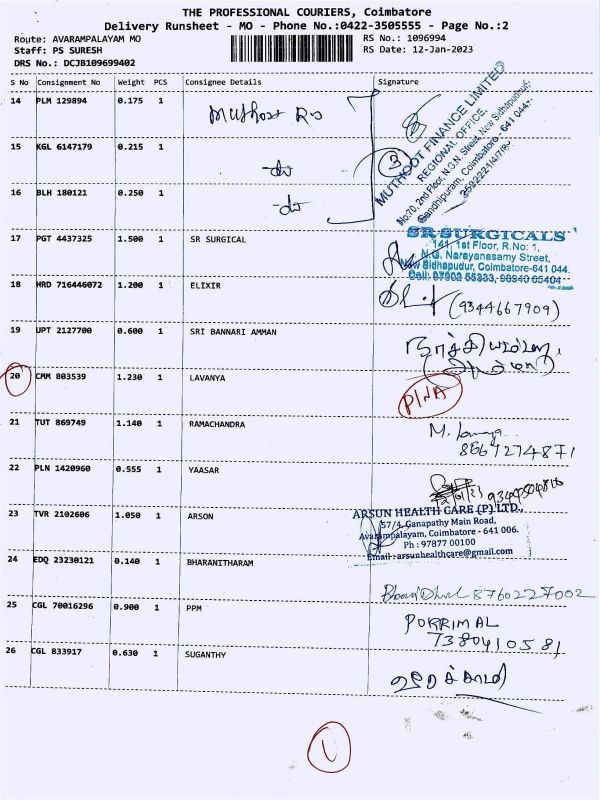 THE PROFESSIONAL COURIERS, Coimbatore
Delivery Runsheet - MO - Phone No.:0422-3505555 - Page No.:2
Route: AVARAMPALAYAM MO
RS No.: 1096994
Staff: PS SURESH
RS Date: 12-Jan-2023
DRS No.: DCJB109699402
S No Consignment No Weight PCS Consignee Details Signature
14 PLM 129894 0.175 1
3
MUTHOOT FINANCE LIMITED
REGIONAL OFFICE,
No:70, 2nd Floor, N.G.N. Street, New Sidhapudhur,
Gandhipuram, Coimbatore - 641 044.
15 KGL 6147179 0.215 1 -do-
16 BLH 180121 0.250 1 -do-
17 PGT 4437325 1.500 1 SR SURGICAL
SR SURGICALS
141, 1st Floor, R.No: 1,
N.G. Narayanasamy Street,
New Sidhapudur, Coimbatore-641 044.
18 HRD 716446072 1.200 1 ELIXIR
(9344667909)
19 UPT 2127700 0.600 1 SRI BANNARI AMMAN
20 CMM 803539 1.230 1 LAVANYA
P/NA
21 TUT 869749 1.140 1 RAMACHANDRA
22 PLN 1420960 0.555 1 YAASAR
23 TVR 2102606 1.050 1 ARSON
ARSUN HEALTH CARE (P) LTD.,
57/4, Ganapathy Main Road,
Avarampalayam, Coimbatore - 641 006.
Ph : 97877 00100
Email : arsunhealthcare@gmail.com
24 EDQ 23230121 0.140 1 BHARANITHARAM
8760227002
25 CGL 70016296 0.900 1 PPM
7380410581
26 CGL 833917 0.630 1 SUGANTHY